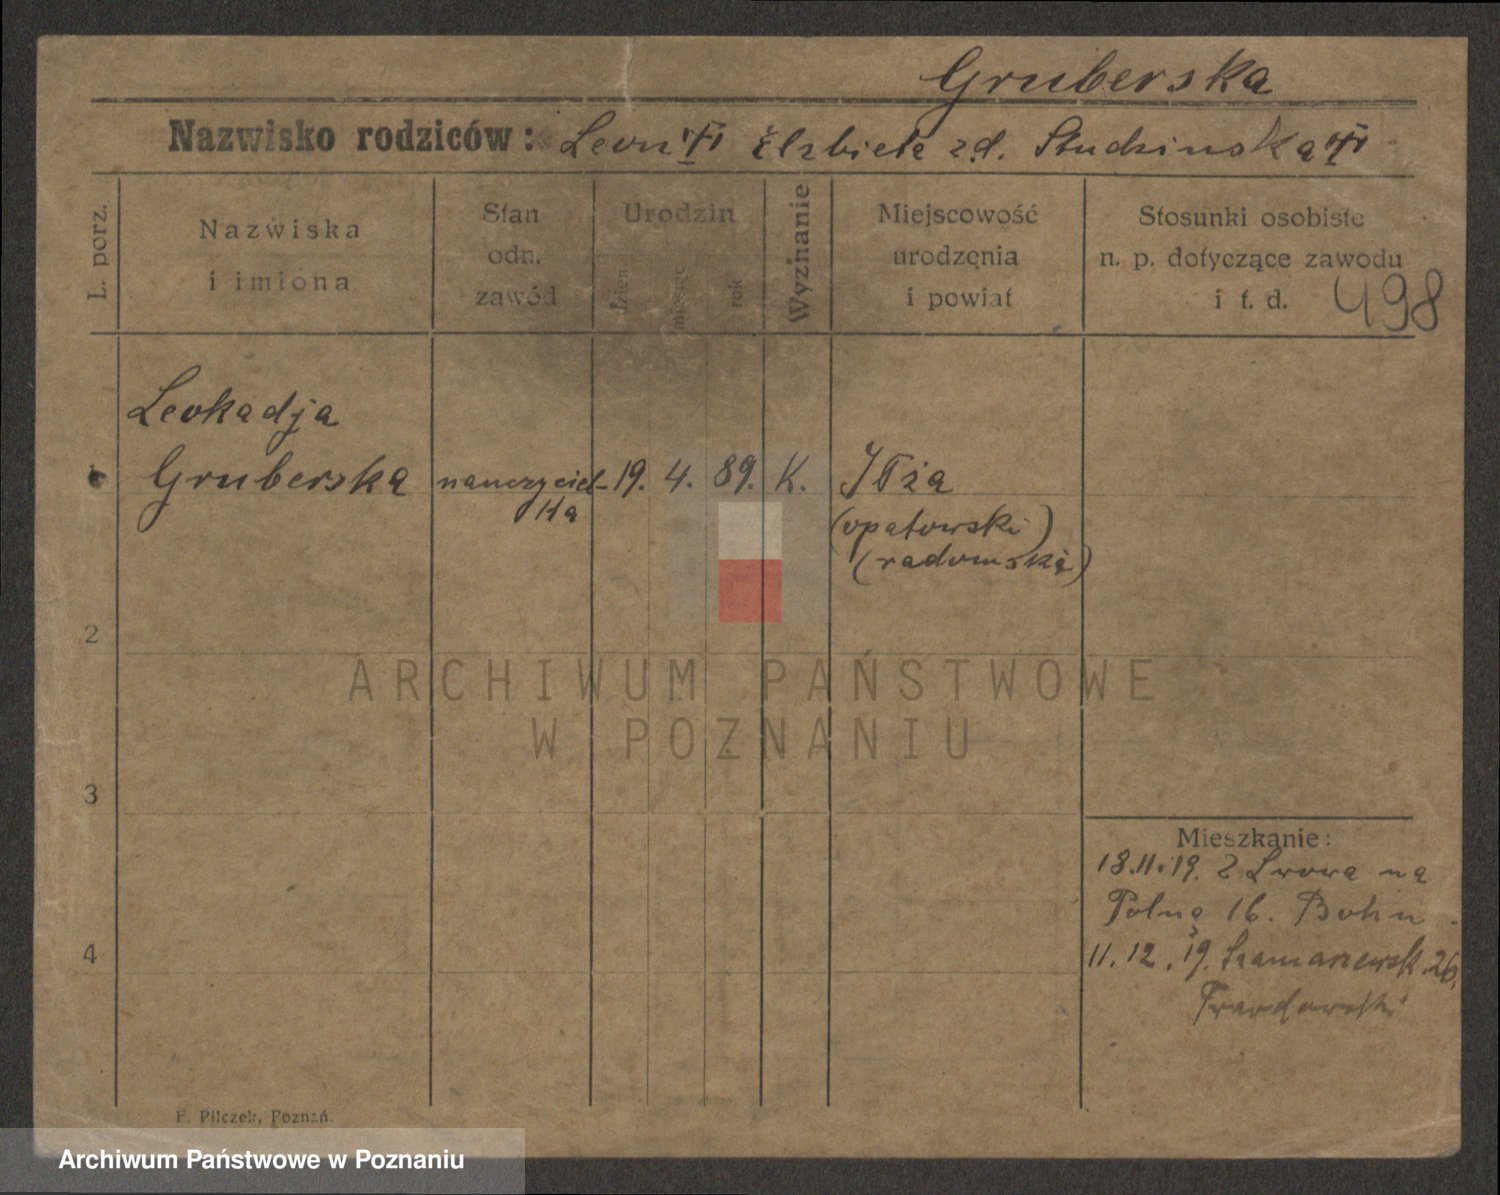 Gruberska
Nazwisko rodziców: Leon Elzbieta zd. Studzinska
L. porz.
Nazwiska
i imiona
Stan
odn.
zawód
Urodzin
dzień
miesiąc
rok
Wyznanie
Miejscowość
urodzenia
i powiat
Stosunki osobiste
n. p. dotyczące zawodu
i t. d. 498
Leokadja
Gruberska nauczyciel- 19. 4. 89. K. Iłża
ka (opatowski)
(radomska)
2
3
4
Mieszkanie:
18.11.19. z Lwowa na
Polną 16. Bohn
11.12.19. Szamarzewsk. 26.
F. Pilczek, Poznań.
ARCHIWUM PAŃSTWOWE
W POZNANIU
Archiwum Państwowe w Poznaniu